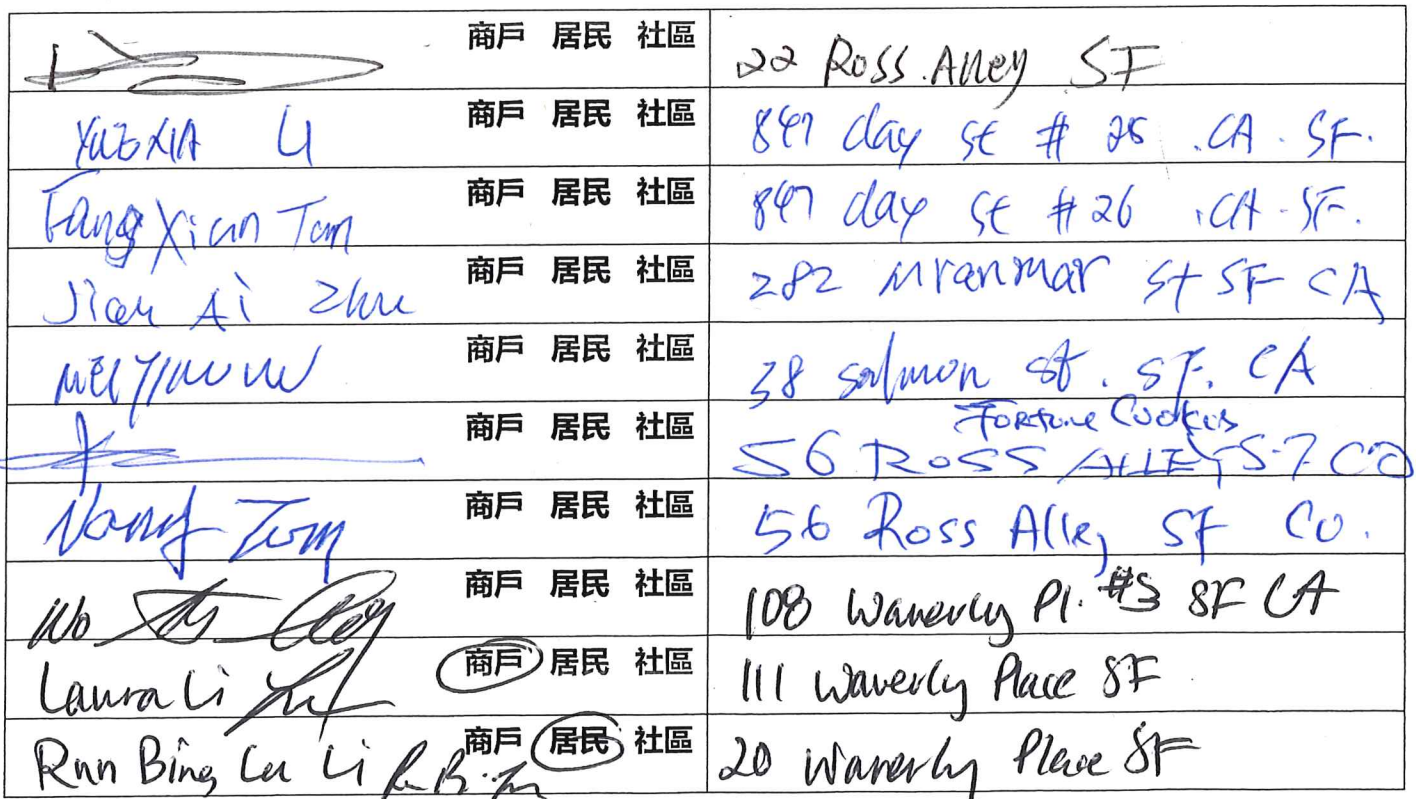 商戶 居民 社區 22 Ross Alley SF
商戶 居民 社區 847 clay st # 25 .CA. SF.
Fang Xian Tam 商戶 居民 社區 847 clay st #26 .CA. SF.
Jian Ai Zhu 商戶 居民 社區 282 st SF CA
商戶 居民 社區 38 salmon st. SF. CA
Fortune Cookies
商戶 居民 社區 56 ROSS ALLEY S.F CA
Tom 商戶 居民 社區 56 Ross Alley SF Ca.
商戶 居民 社區 108 Waverly Pl. #3 SF CA
Laura Li 商戶 居民 社區 111 Waverly Place SF
Run Bing Li 商戶 居民 社區 20 Waverly Place SF